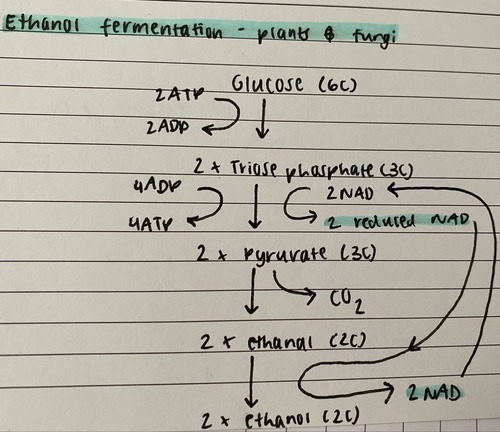 Ethanol fermentation - plants & fungi
Glucose (6C)
2ATP
2ADP
2 x Triose phosphate (3C)
4ADP
2NAD
4ATP
2 reduced NAD
2 x pyruvate (3C)
CO2
2 x ethanal (2C)
2NAD
2 x ethanol (2C)